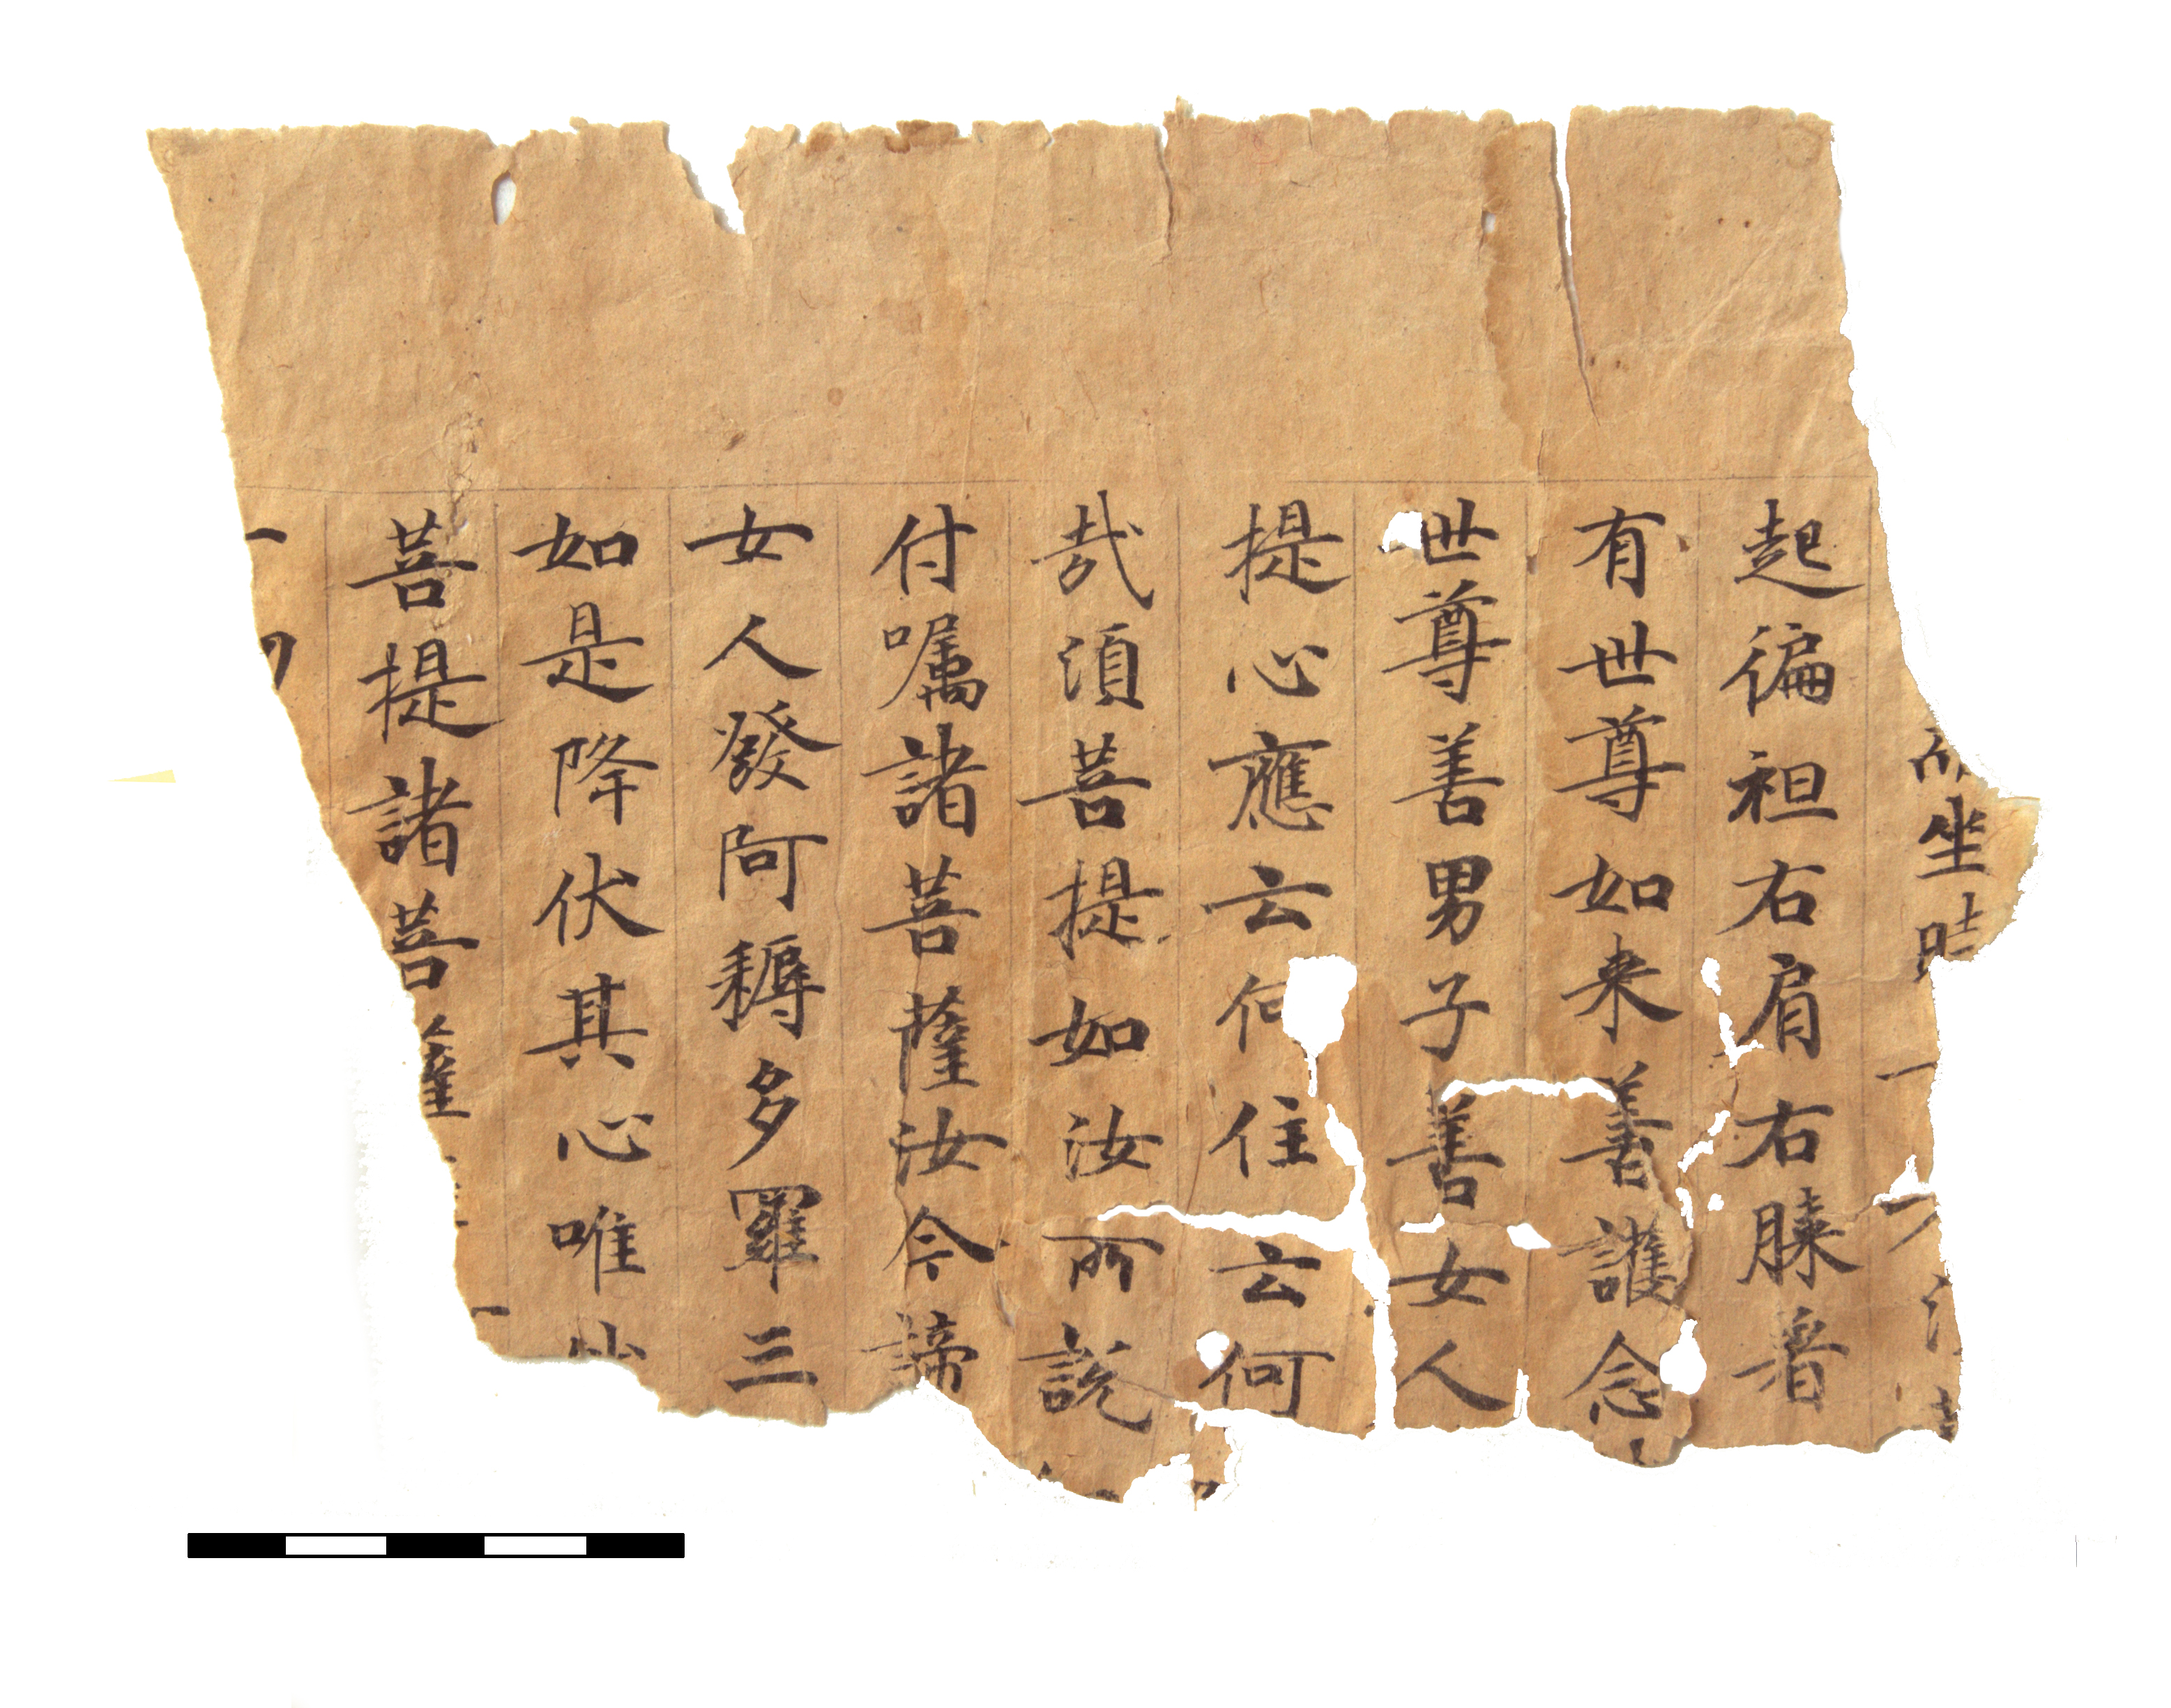 而坐時
起徧袒右肩右膝著
有世尊如来善護念
世尊善男子善女人
提心應云何住云何
㢤須菩提如汝所說
付囑諸菩薩汝今諦
女人發阿耨多羅三
如是降伏其心唯
菩提諸菩薩